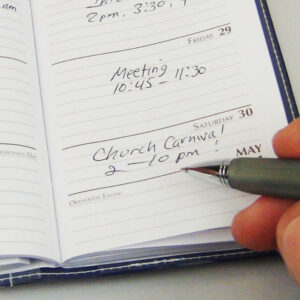 am
2pm, 3:30,
FRIDAY 29
Meeting
10:45 - 11:30
SATURDAY 30
Church Carnival!
2 - 10 pm!
MAY
ORTHODOX EASTER